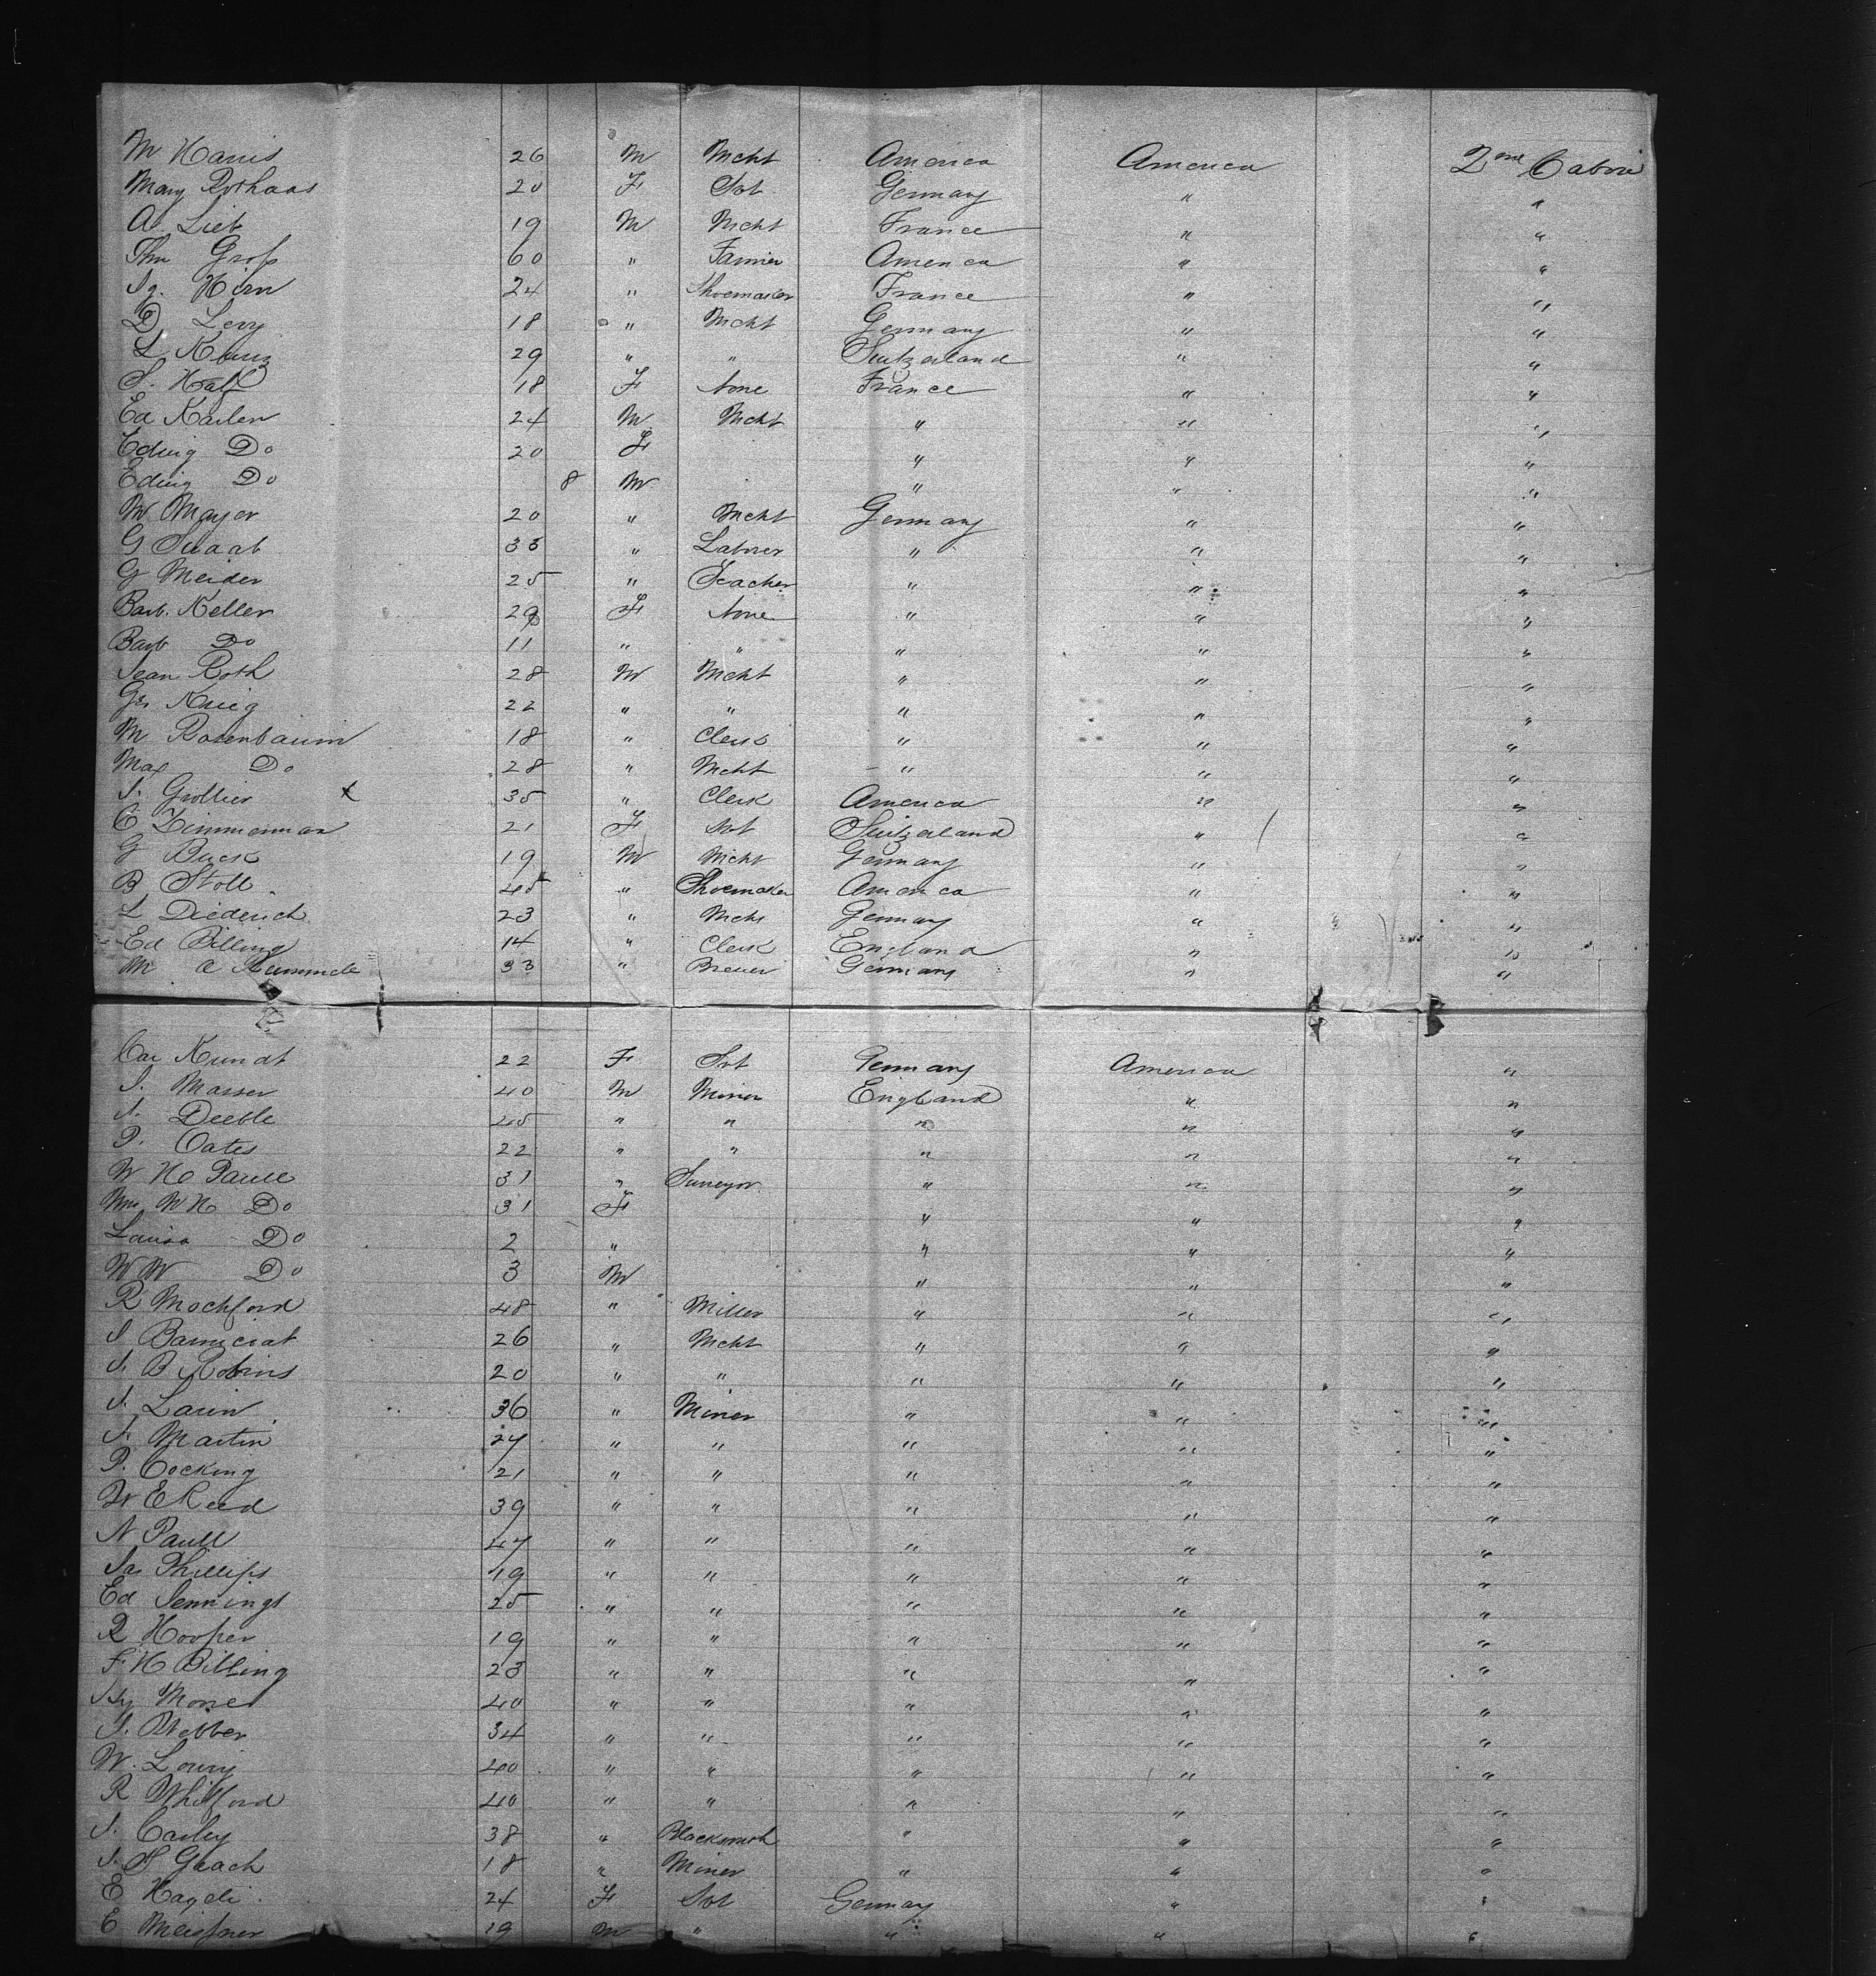 M Harris 26 M Mcht America America 2nd Cabin
Mary Rothaas 20 F Svt Germany " "
A. Lieb 19 M Mcht France " "
Thn Groſs 60 " Farmer America " "
Ig. Hirn 24 " Shoemaker France " "
D Levy 18 " Mcht Germany " "
L Kunz 29 " " Switzerland " "
S. Half 18 F None France " "
Ed Karlen 24 M Mcht " " "
Edwig Do 20 F " " "
Edwig Do 8 M " " "
M Mayer 20 " Mcht Germany " "
G Swaab 33 " Laborer " " "
G Meider 25 " Teacher " " "
Barb. Keller 29 F None " " "
Barb Do 11 " " " " "
Jean Roth 28 M Mcht " " "
Krieg 22 " " " " "
M Rosenbaum 18 " Clerk " " "
Max Do 28 " Mcht " " "
J. Grollier x 35 " Clerk America " "
C Zimmerman 21 F Svt Switzerland " "
G Buck 19 M Mcht Germany " "
B Stoll 45 " Shoemaker America " "
L Diederich 23 " Mcht Germany " "
Ed Billing 14 " Clerk England " "
M a Kummele 33 " Brewer Germany " "
Car Kundt 22 F Svt Germany America "
J. Masser 40 M Miner England " "
J. Deeble 45 " " " " "
P. Oates 22 " " " " "
W H Paull 31 " Surveyor " " "
Mrs W H Do 31 F " " "
Louisa Do 2 " " " "
W W Do 3 M " " "
R Mochford 48 " Miller " " "
J 26 " Mcht " " "
J. B Robins 20 " " " " "
J. Larin 36 " Miner " " "
J. Martin 27 " " " " "
P. Cocking 21 " " " " "
W E Reed 39 " " " " "
N Paull 47 " " " " "
Jas Phillips 19 " " " " "
Ed Jennings 25 " " " " "
R Hooper 19 " " " " "
F H Billing 23 " " " " "
Hy Morse 40 " " " " "
J. Webber 34 " " " " "
W. Lowry 40 " " " " "
R Whitford 40 " " " " "
J. Carley 38 " Blacksmith " " "
J. S Geach 18 " Miner " " "
E Hageli 24 F Svt Germany " "
C Meiſsner 19 M " " " "